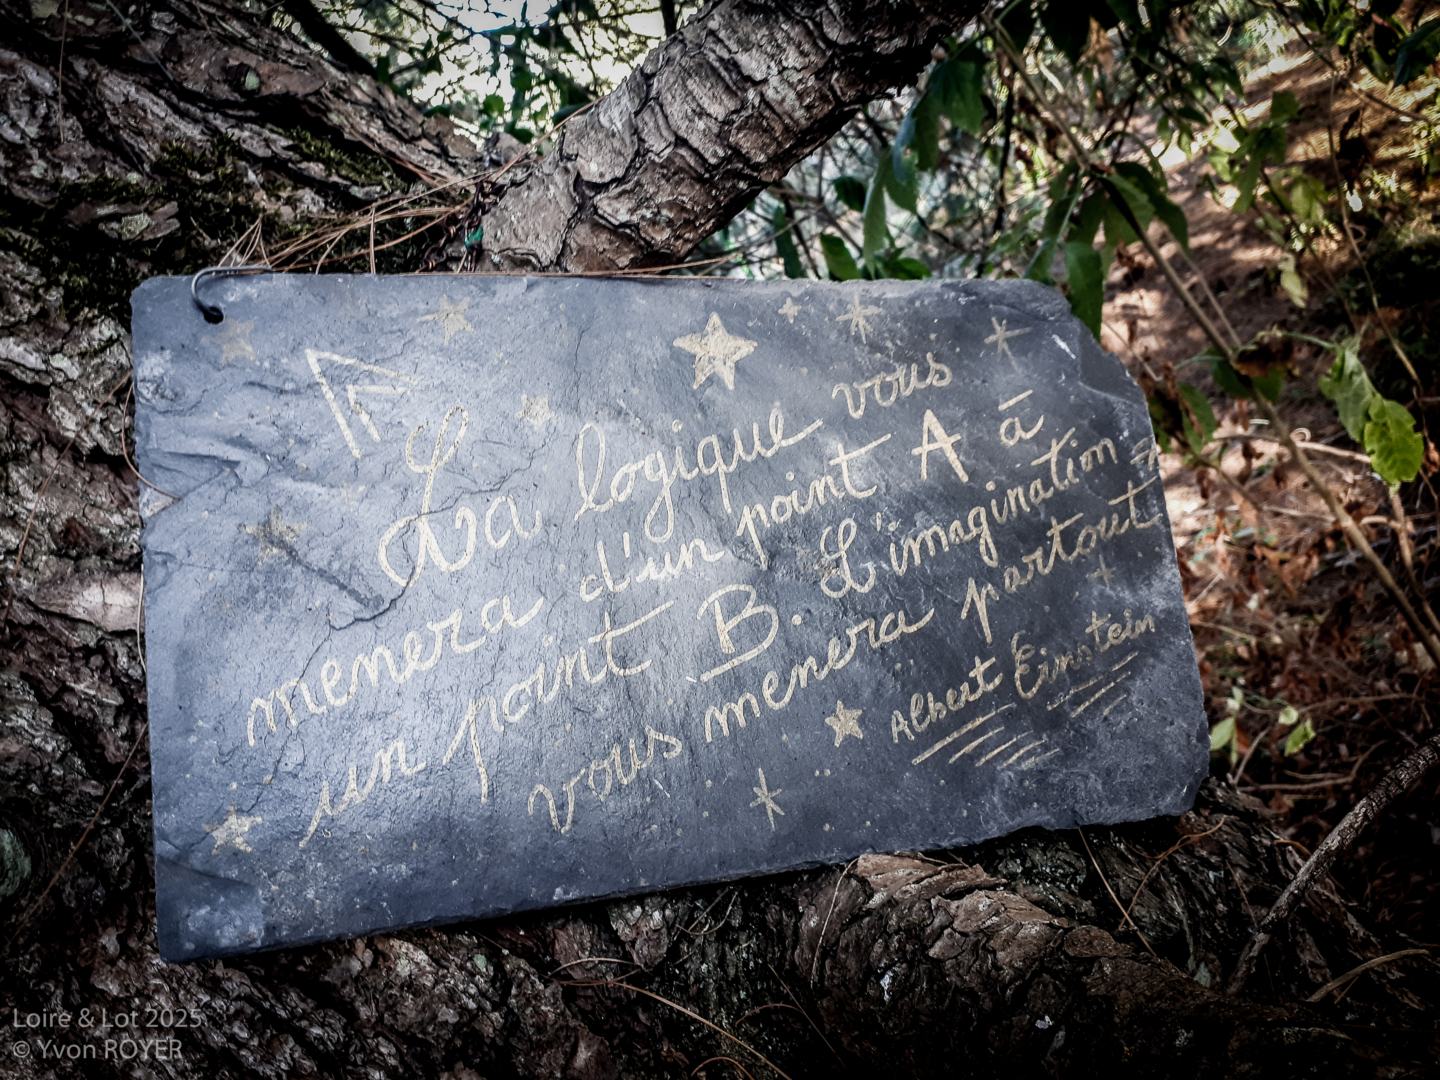 La logique vous
menera d'un point A à
un point B. L'imagination
vous menera partout
Albert Einstein
Loire & Lot 2025
© Yvon ROYER